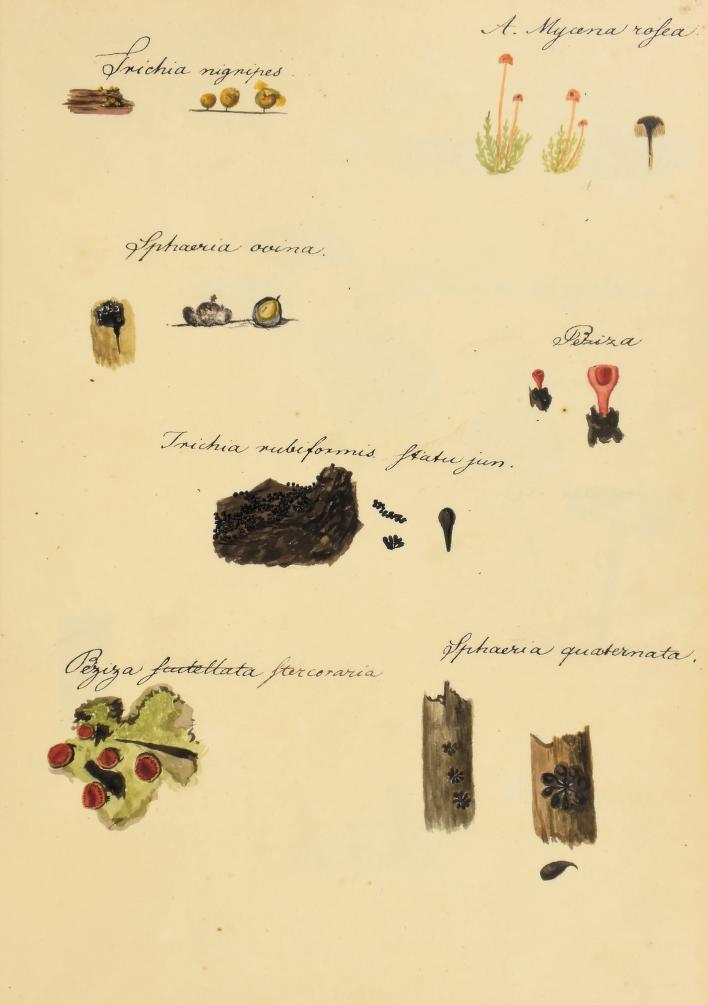 A. Mycena rosea.
Trichia nigripes.
Sphaeria ovina.
Peziza
Trichia rubiformis statu jun.
Sphaeria quaternata.
Peziza scutellata stercoraria